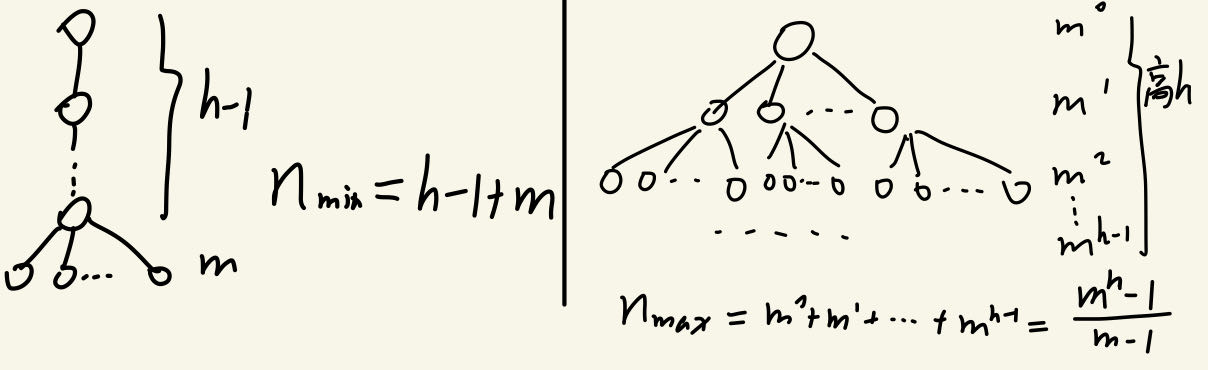 h-1
n_min = h-1+m
m
m^0
m^1
高h
m^2
⋮
m^{h-1}
n_max = m^0+m^1+⋯+m^{h-1} = \frac{m^h-1}{m-1}